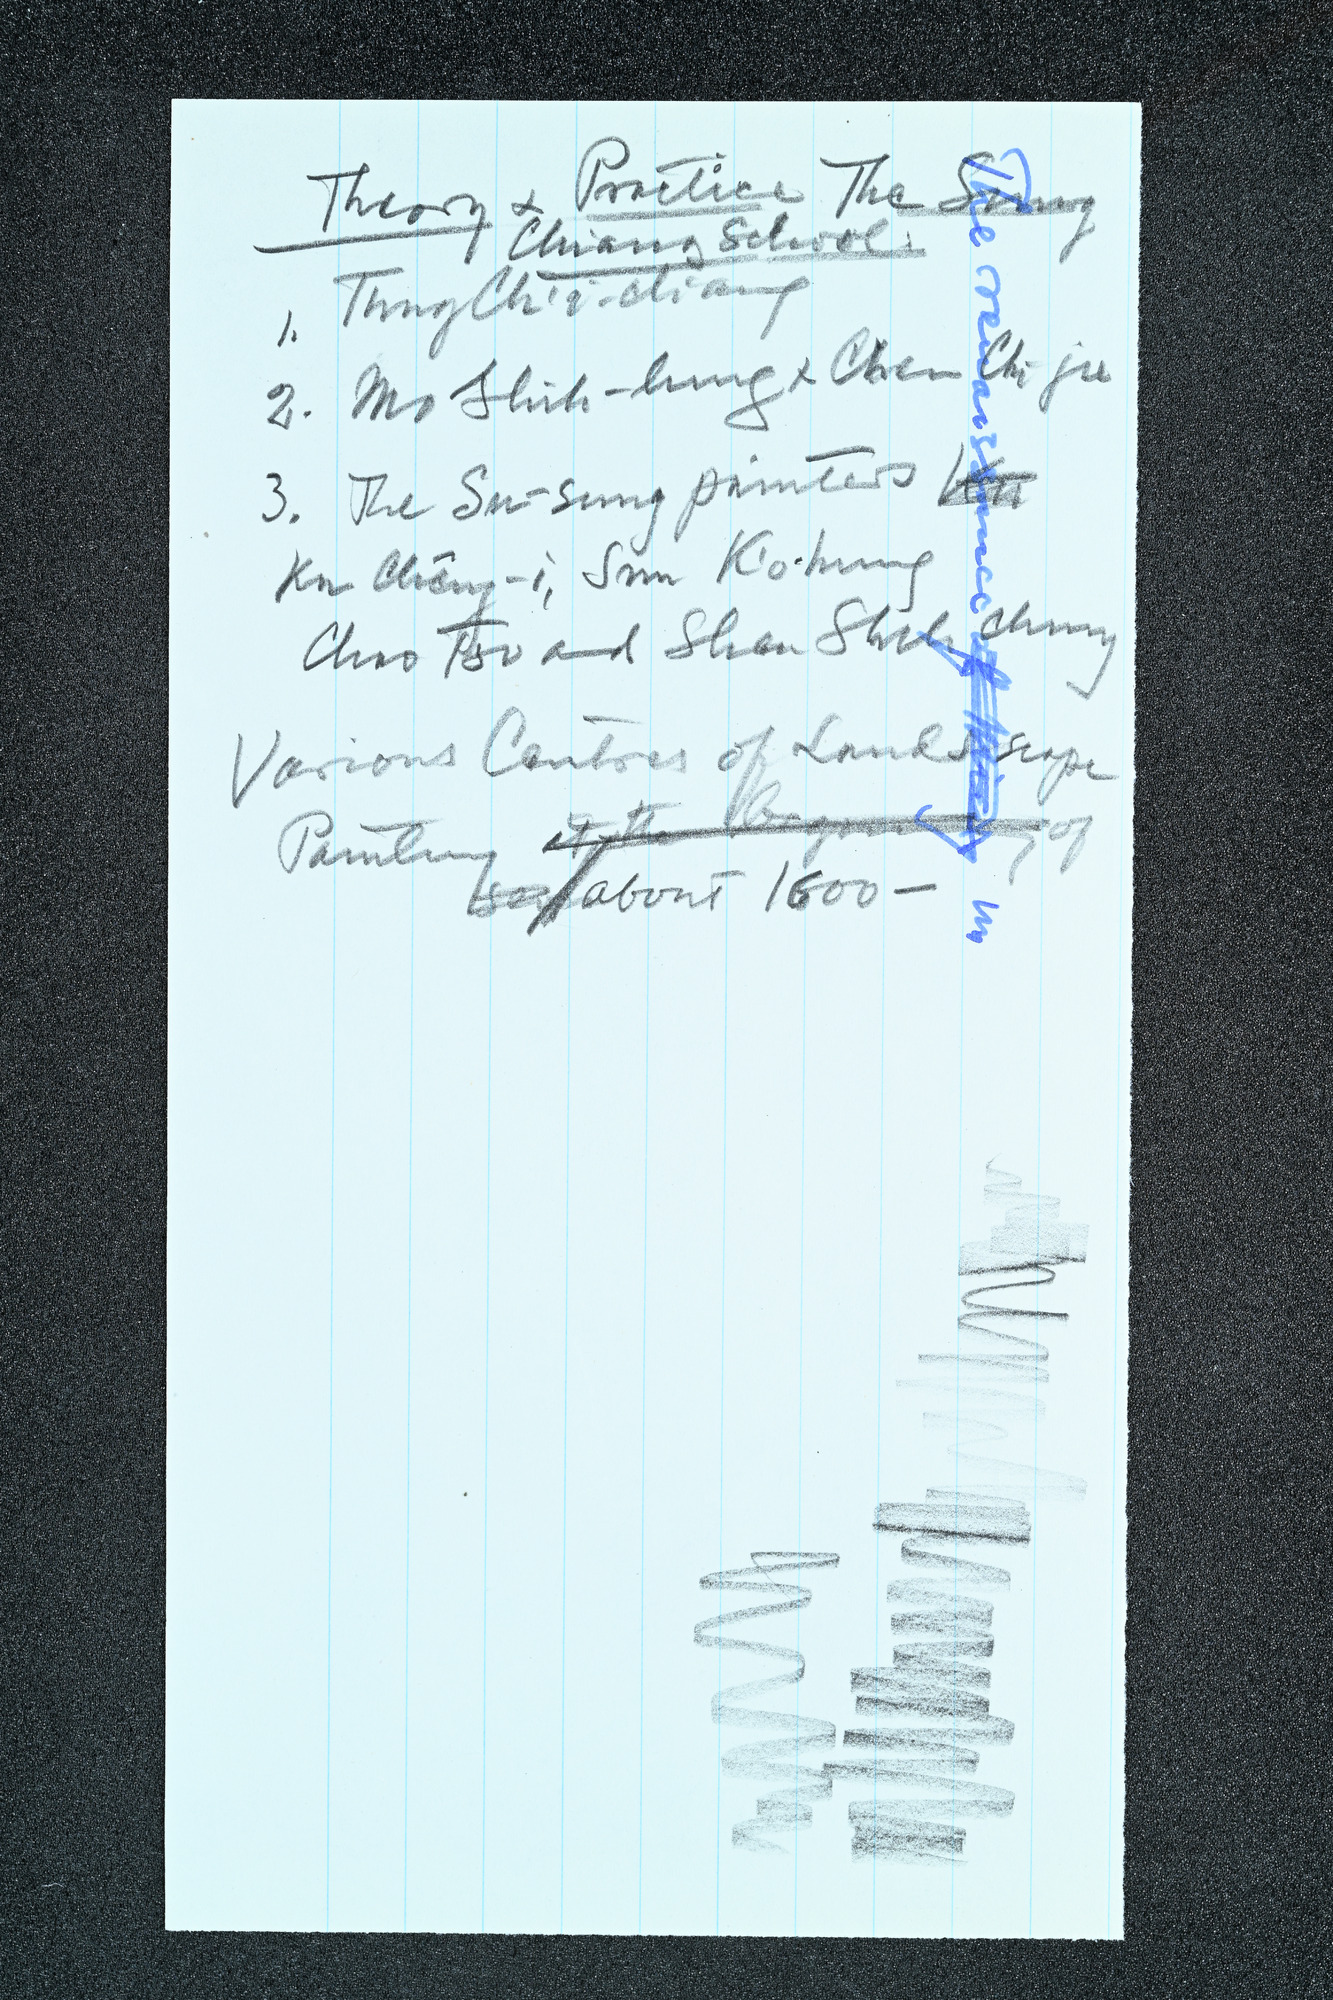 Theory & Practice The Sung
Chiang School:
1. Tung Ch'i-ch'ang
2. Mo Shih-lung & Chen Chi ju
3. The Su-sung painters
Ku Chêng-i, Sun K'o-hung
Chao Tso and Shen Shih chung
Various Centres of Landscape
Painting at the Beginning of
about 1600-
The renaissance of in